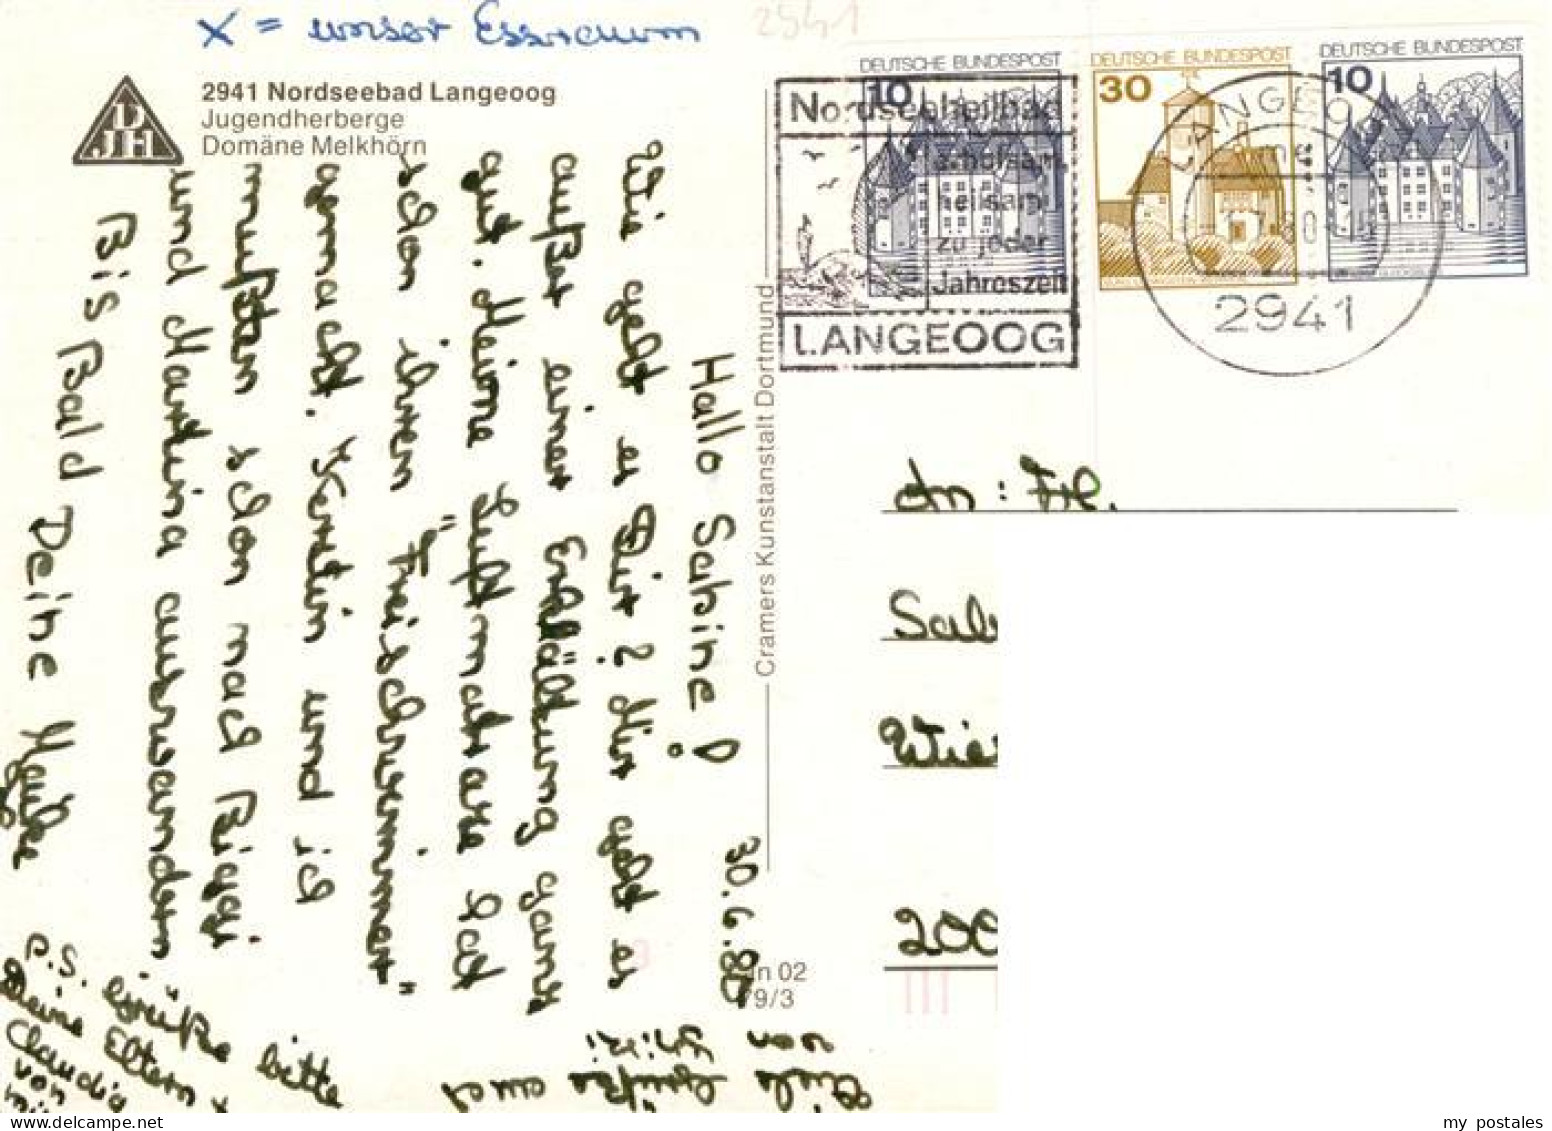 X = unser Essraum
2941
2941 Nordseebad Langeoog
Jugendherberge
Domäne Melkhörn
DJH
DEUTSCHE BUNDESPOST
10
DEUTSCHE BUNDESPOST
30
DEUTSCHE BUNDESPOST
10
Nordseeheilbad
erholsam,
heilsam
zu jeder
Jahreszeit
LANGEOOG
LANGEOOG
2941
Cramers Kunstanstalt Dortmund
30.6.80
Hallo Sabine!
Wie geht es Dir? Mir geht es
außer einer Erkältung ganz
gut. Meine Luftmatraze hat
schon ihren "Freischwimmer"
gemacht. Kerstin und ich
mußten schon nach Biggi
und Martina auswandern
Bis Bald Deine Hauke
P.S. Grüße bitte
Deine Eltern +
Claudia
von
mir
Viele Grüße auch
von
An: Frl.
Sab
Wie
200
02
79/3
my postales